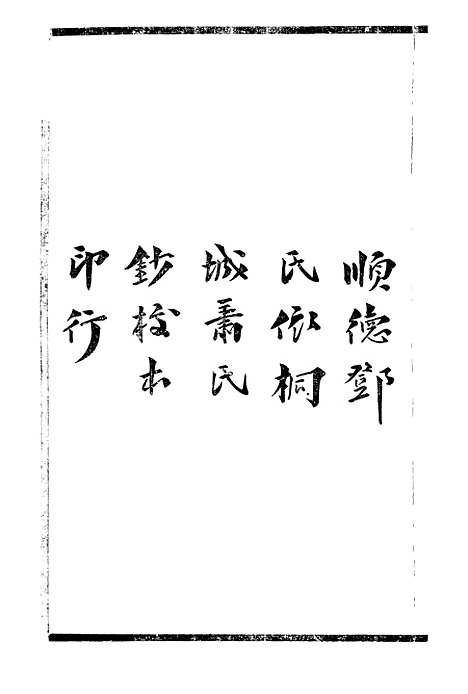 順德鄧
氏依桐
城蕭氏
鈔校本
印行